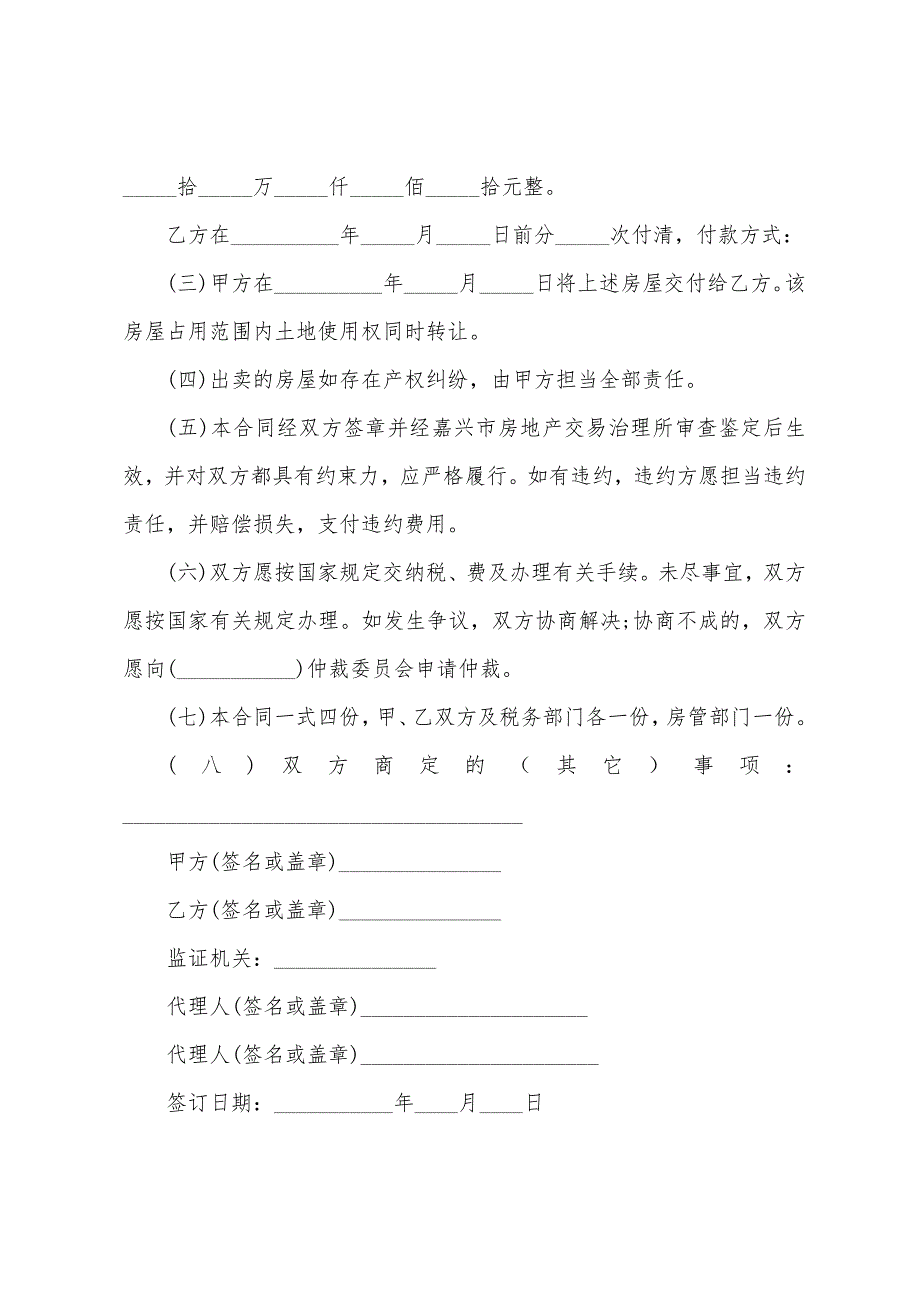 _____拾_____万_____仟_____佰_____拾元整。
乙方在__________年_____月_____日前分_____次付清，付款方式：
(三)甲方在__________年_____月_____日将上述房屋交付给乙方。该
房屋占用范围内土地使用权同时转让。
(四)出卖的房屋如存在产权纠纷，由甲方担当全部责任。
(五)本合同经双方签章并经嘉兴市房地产交易治理所审查鉴定后生
效，并对双方都具有约束力，应严格履行。如有违约，违约方愿担当违约
责任，并赔偿损失，支付违约费用。
(六)双方愿按国家规定交纳税、费及办理有关手续。未尽事宜，双方
愿按国家有关规定办理。如发生争议，双方协商解决;协商不成的，双方
愿向(___________)仲裁委员会申请仲裁。
(七)本合同一式四份，甲、乙双方及税务部门各一份，房管部门一份。
(八)双方商定的（其它）事项：
_____________________________________
甲方(签名或盖章)_______________
乙方(签名或盖章)_______________
监证机关：_______________
代理人(签名或盖章)_____________________
代理人(签名或盖章)______________________
签订日期：___________年____月____日